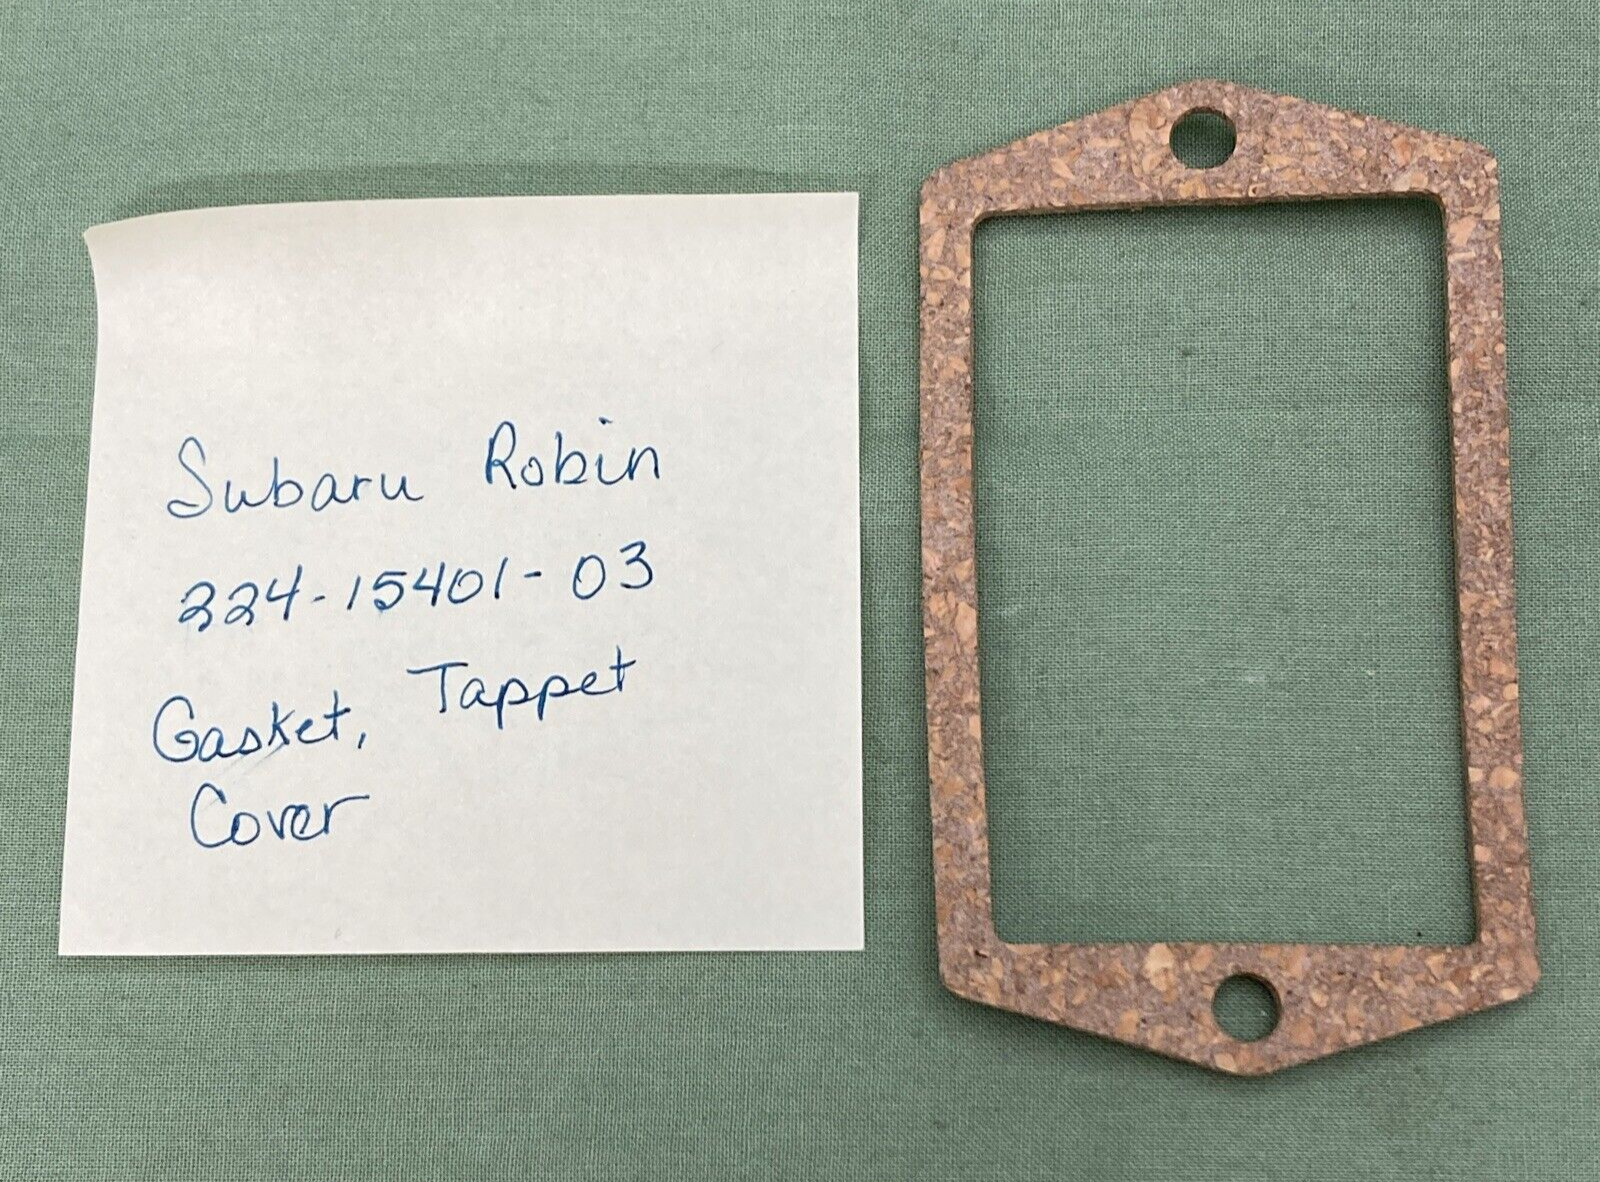 Subaru Robin
224-15401-03
Gasket, Tappet
Cover